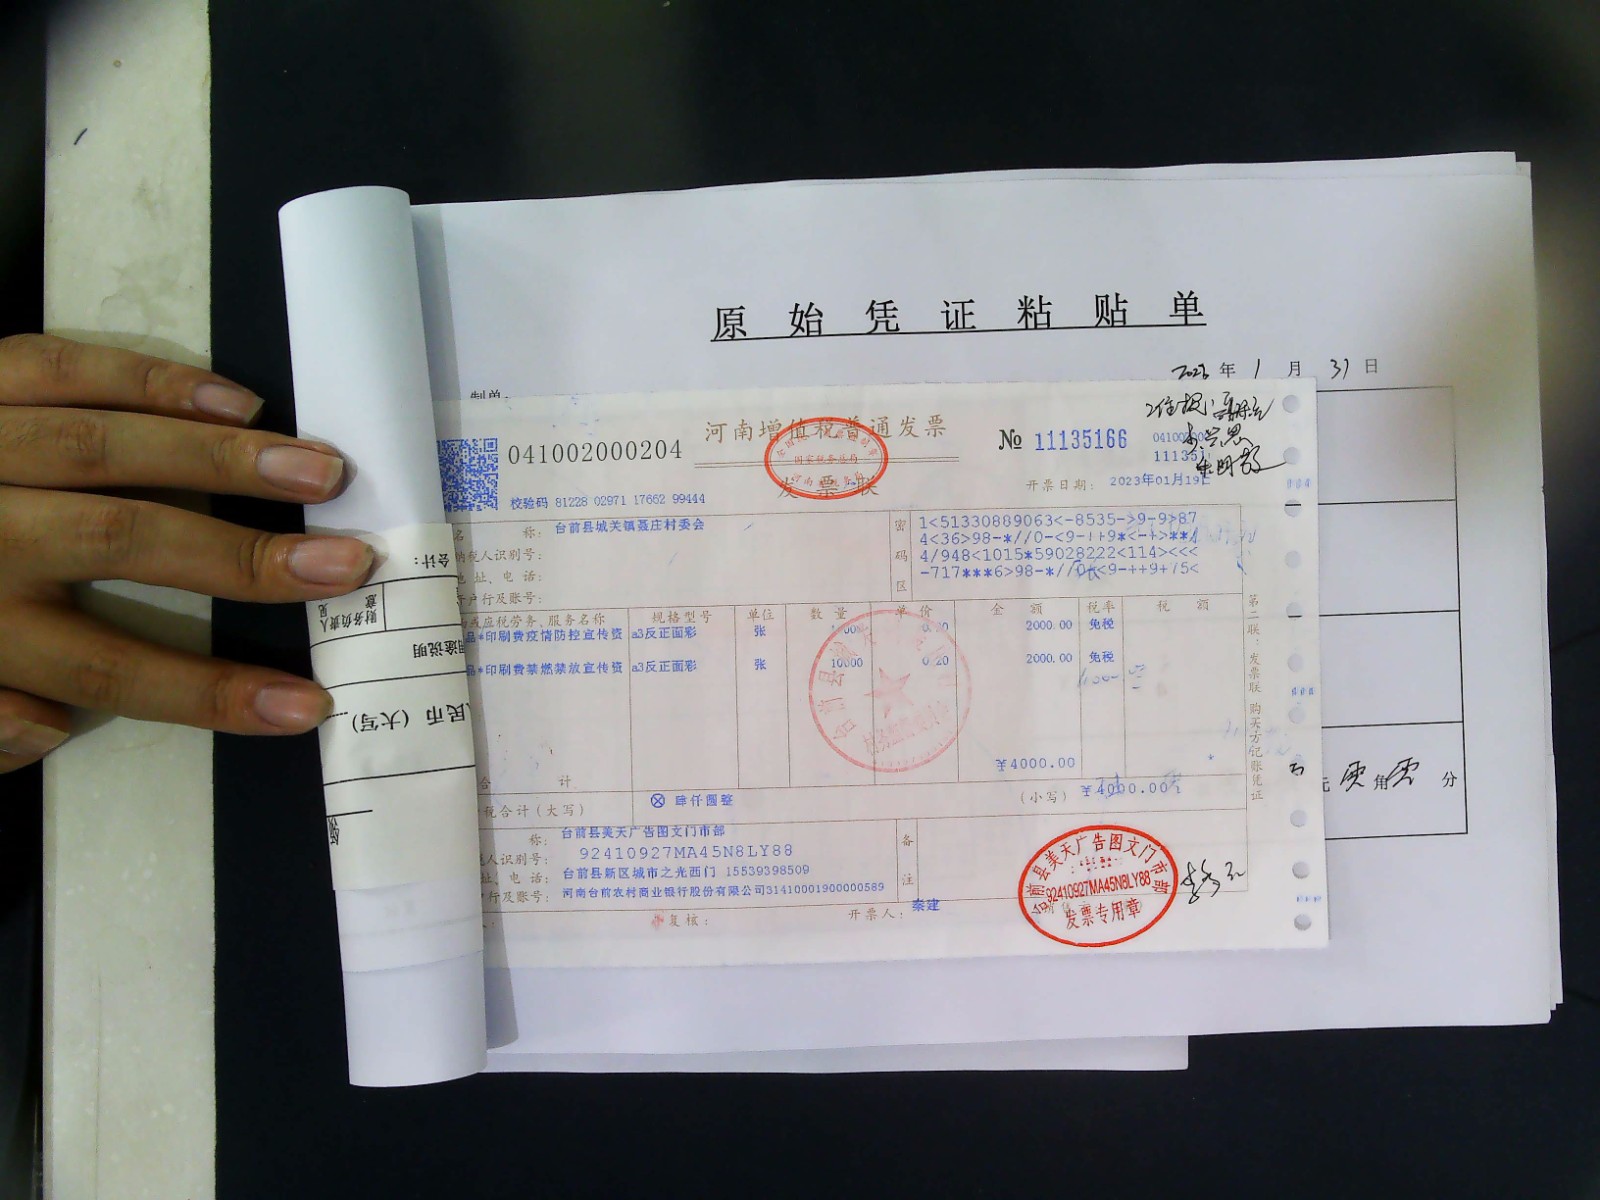 原始凭证粘贴单
年1月31日
制单:
041002000204
河南增值税普通发票
发票联
№ 11135166
校验码 81228 02971 17662 99444
开票日期: 2023年01月19日
称: 台前县城关镇聂庄村委会
纳税人识别号:
地址、电话:
开户行及账号:
密码区
1<51330889063<-8535->9-9>87
4/948<1015*59028222<114><<<
应税劳务、服务名称 规格型号 单位 数量 单价 金额 税率 税额
*印刷费疫情防控宣传资 a3反正面彩 张 2000.00 免税
*印刷费禁燃禁放宣传资 a3反正面彩 张 10000 0.20 2000.00 免税
合计 ¥4000.00 *
税合计(大写) ⊗ 肆仟圆整 (小写) ¥4000.00
称: 台前县美天广告图文门市部
人识别号: 92410927MA45N8LY88
址、电话: 台前县新区城市之光西门 15539398509
行及账号: 河南台前农村商业银行股份有限公司31410001900000589
备注
复核: 开票人: 秦建
第二联:发票联 购买方记账凭证
台前县美天广告图文门市部
92410927MA45N8LY88
发票专用章
元 角 分
会计:
财务负责人
意见
用途说明
民币(大写)